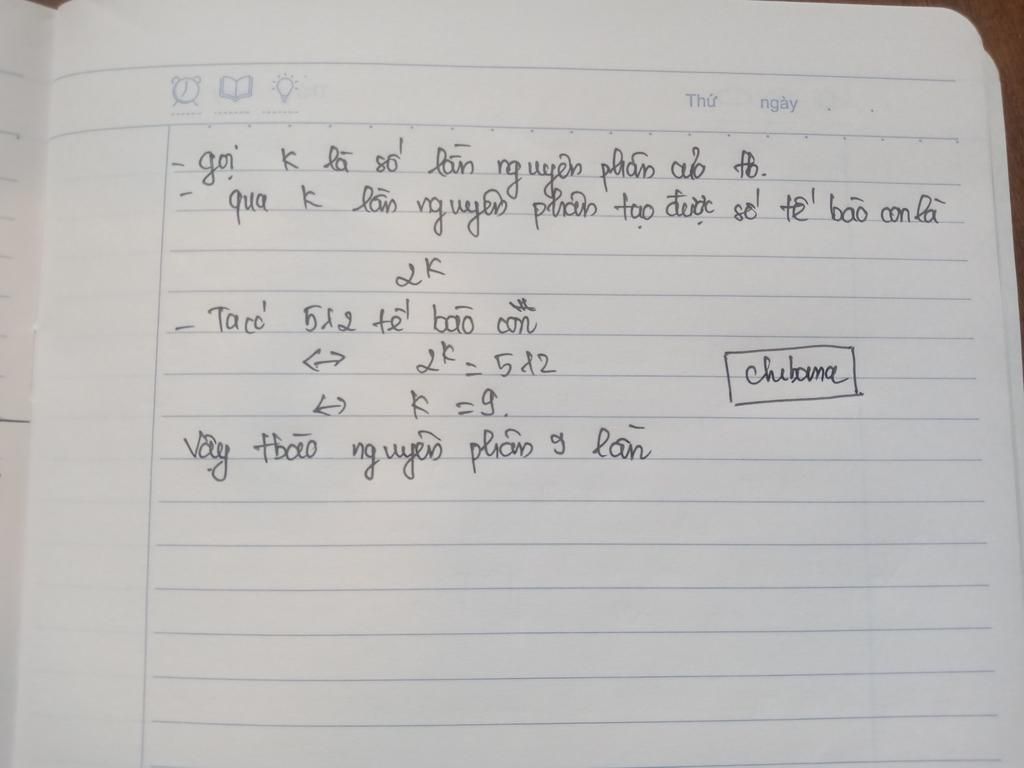 Thứ ngày . .
- gọi K là số lần nguyên phân của tb.
- qua K lần nguyên phân tạo được số tế bào con là
2^K
- Ta có 512 tế bào con
<-> 2^K = 512
<-> K = 9.
chibana
Vậy tbào nguyên phân 9 lần